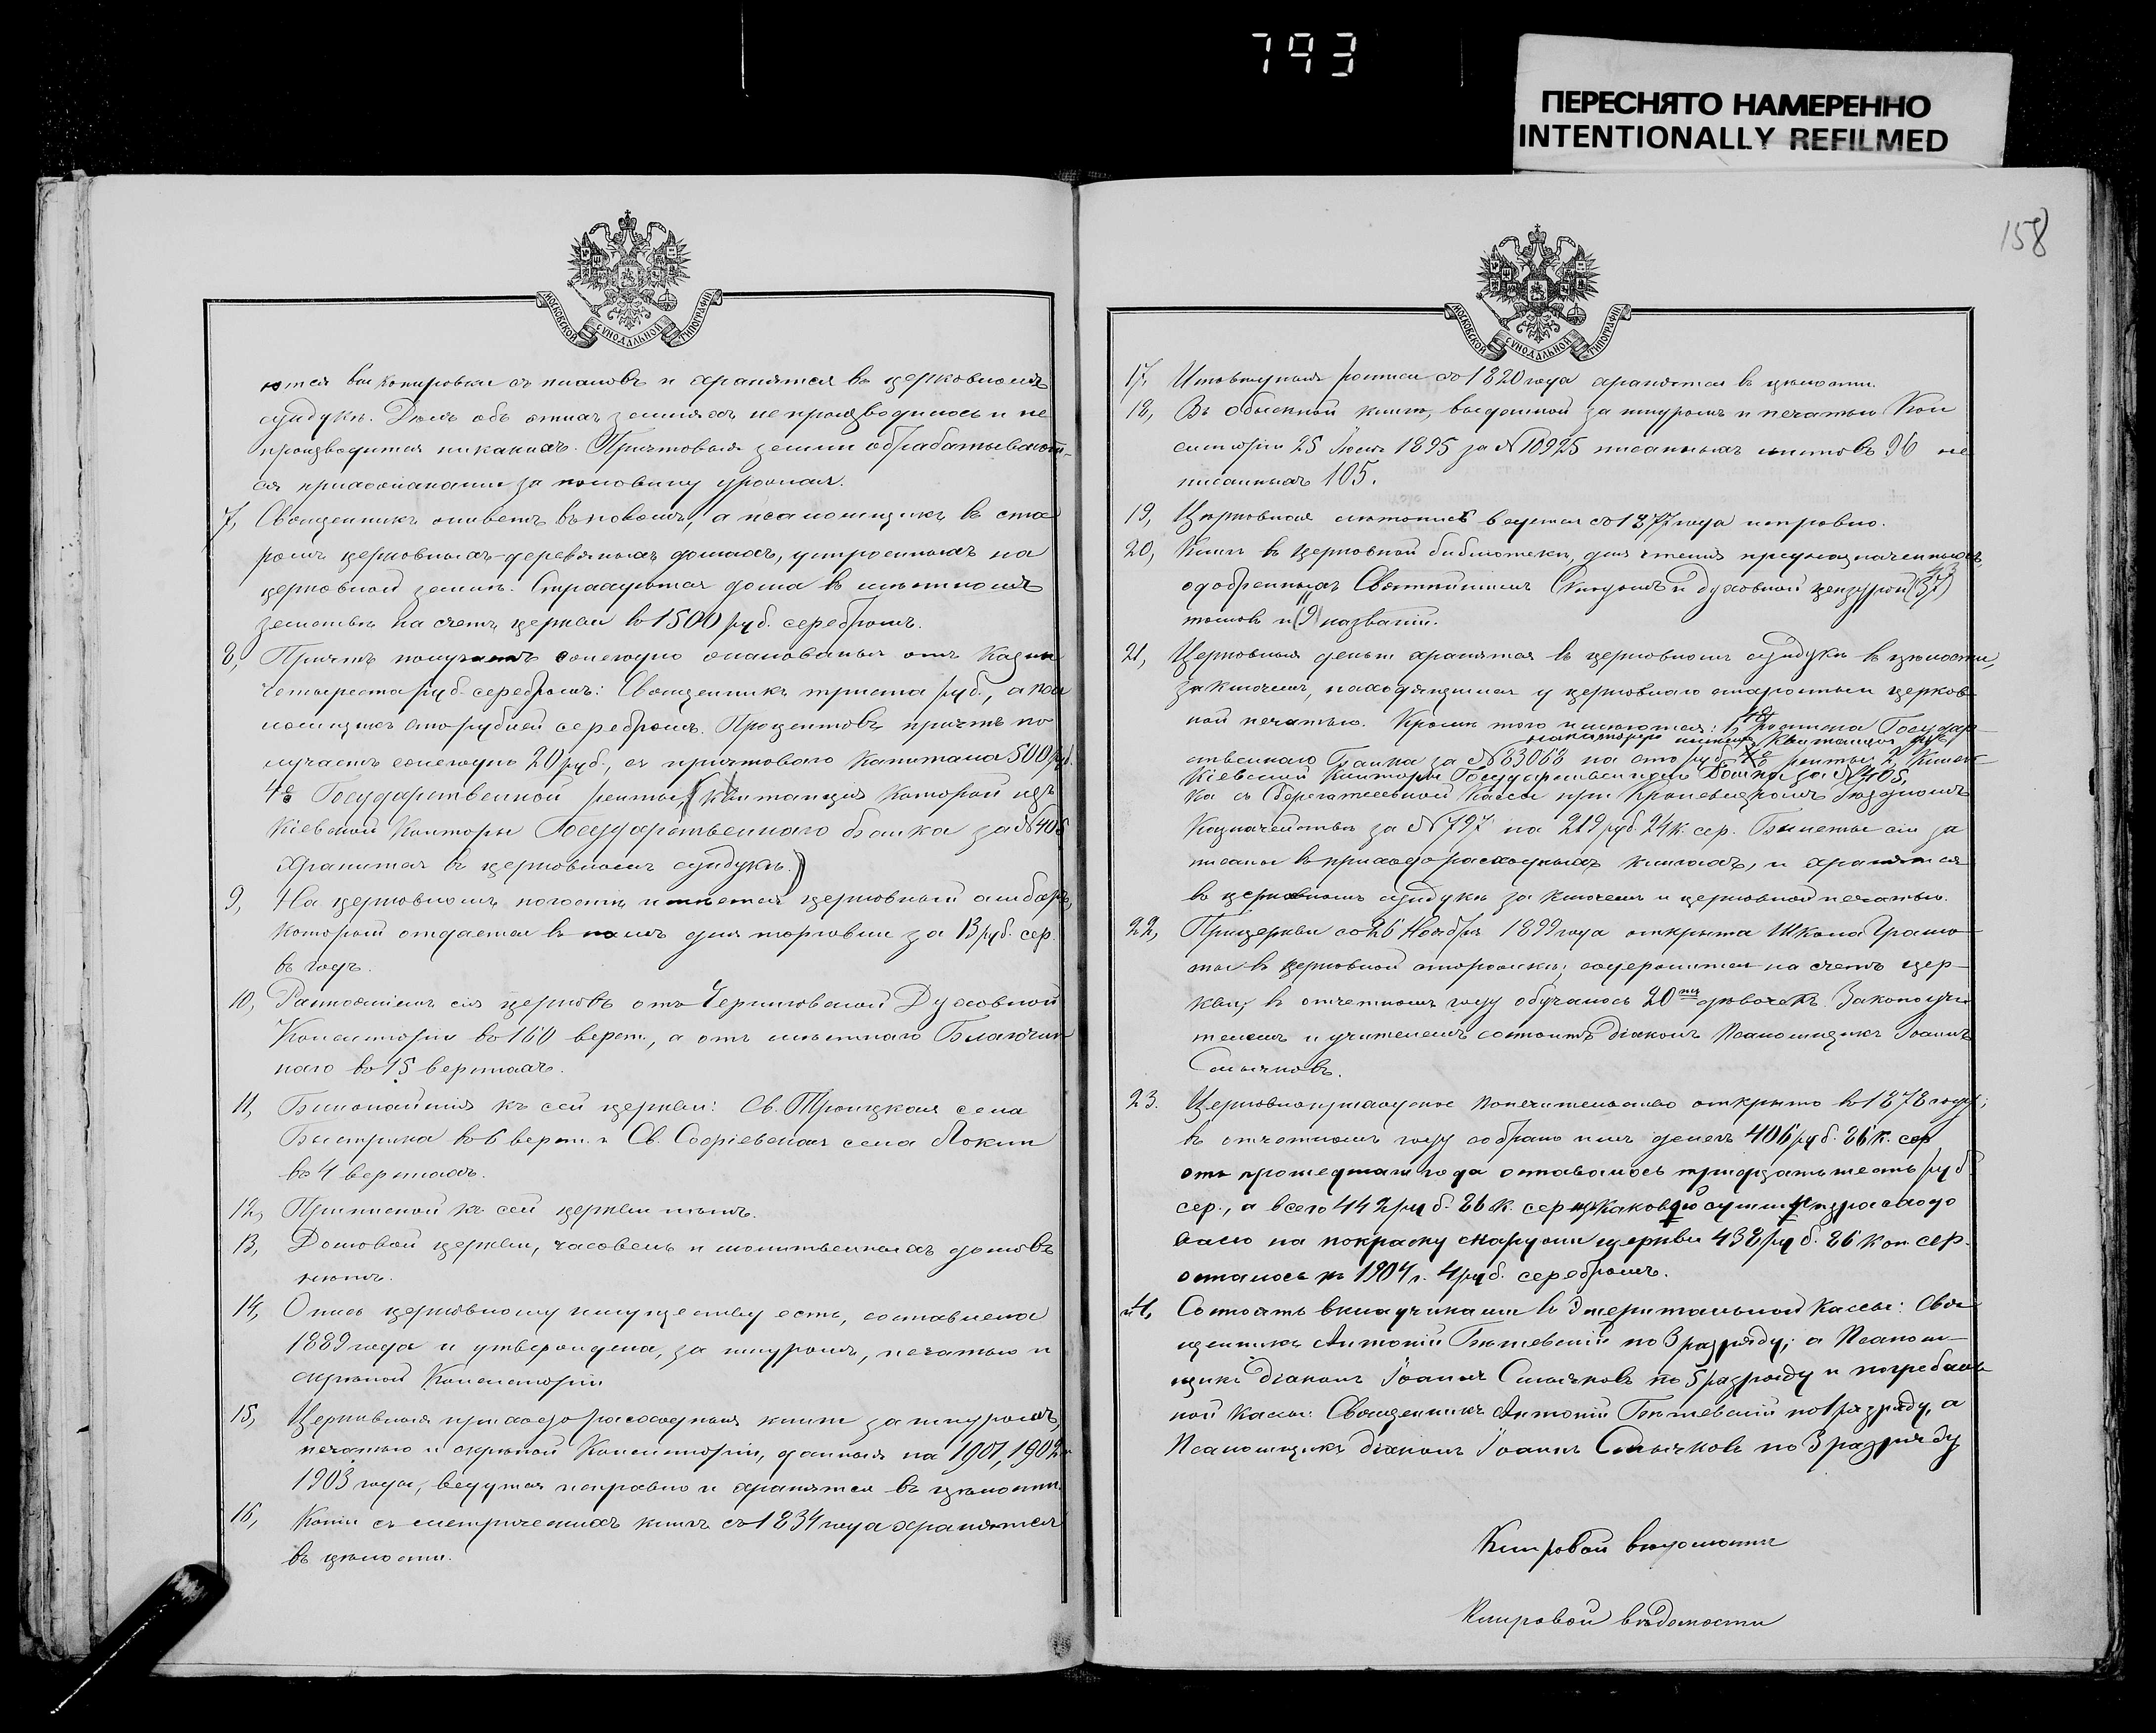 793
ПЕРЕСНЯТО НАМЕРЕННО
INTENTIONALLY REFILMED
158
МОСКОВСКОЙ СУНОДАЛЬНОЙ ТИПОГРАФІИ
ются выкопировки съ плановъ и хранятся въ церковномъ
сундукѣ. Дѣлъ объ этихъ земляхъ не производилось и не
производится никакихъ. Причтовыя земли обрабатывают-
ся прихожанами за половину урожая.
7, Священникъ живетъ въ новомъ, а псаломщикъ въ ста
ромъ церковныхъ-деревяныхъ домахъ, устроенныхъ на
церковной землѣ. Страхуются дома въ мѣстномъ
земствѣ на счетъ церкви въ 1500 руб. серебромъ.
8, Причтъ получаетъ ежегодно жалованья отъ Казны
четыреста руб. серебромъ: Священникъ триста руб., а пса
ломщикъ сто рублей серебромъ. Процентовъ причтъ по
лучаетъ ежегодно 20 руб., съ причтоваго капитала 500 руб.
4% Государственной ренты, (квитанция которой изъ
Кіевской Конторы Государственнаго банка за № 406
хранится въ церковномъ сундукѣ.)
9, На церковномъ погостѣ имѣется церковный амбаръ,
который отдается въ наемъ для торговли за 13 руб. сер.
въ годъ.
10, Разстояніемъ сія церковь отъ Черниговской Духовной
Консисторіи въ 160 верст., а отъ мѣстнаго Благочин
наго въ 15 верстахъ.
11, Ближайшія къ сей церкви: Св. Троицкая села
Быстрика въ 6 верст. и Св. Софіевская села Локни
въ 4 верстахъ.
12, Приписной къ сей церкви нѣтъ.
13, Домовой церкви, часовенъ и молитвенныхъ домовъ
нѣтъ.
14, Опись церковному имуществу есть, составлена
1889 года и утверждена, за шнуромъ, печатью и
скрѣпой Консисторіи
15, Церковныя приходо расходныя книги за шнуромъ,
печатью и скрѣпой Консисторіи, данныя на 1901, 1902 и
1903 годы, ведутся исправно и хранятся въ цѣлости.
16, Копіи съ метрическихъ книгъ съ 1834 года хранятся
въ цѣлости.
МОСКОВСКОЙ СУНОДАЛЬНОЙ ТИПОГРАФІИ
17, Исповѣдныя росписи съ 1820 года хранятся въ цѣлости.
18, Въ обыскной книгѣ, выданной за шнуромъ и печатью Кон
систоріи 25 1895 за № 10925 писанныхъ листовъ 96 не
писанныхъ 105.
19, Церковная лѣтопись ведется съ 1877 года исправно.
20, Книгъ въ церковной библіотекѣ, для чтенія предназначенныхъ,
43
одобренныхъ Святѣйшимъ Сунодомъ и духовной цензурой (37)
томовъ и (9) названій.
21, Церковныя деньги хранятся въ церковномъ сундукѣ въ цѣлости,
за ключемъ, находящимся у церковнаго старосты и церков-
ной печатью. Кромѣ того имѣются: 1, росписка Государ-
на которую имѣется квитанція
ственнаго Банка за № 83068 на сто руб. 4% ренты 2, Книж-
Кіевской Конторы Государственнаго Банка за № 405,
ка съ Сберегательной Кассы при Кролевецкомъ Уѣздномъ
Казначействѣ за № 797 на 219 руб. 24 к. сер. Билеты сіи за
писаны въ приходорасходныхъ книгахъ, и хранятся
въ церковномъ сундукѣ за ключемъ и церковной печатью.
22, При церкви съ 26 Ноября 1899 года открыта Школа Грамо-
ты въ церковной сторожкѣ; содержится на счетъ цер-
кви; въ отчетномъ году обучалось 20 дѣвочекъ. Законоучи
телемъ и учителемъ состоитъ діаконъ Псаломщикъ Іоаннъ
Смычковъ.
23. Церковноприходское попечительство открыто въ 1878 году;
въ отчетномъ году собрано имъ денегъ 406 руб. 26 к. сер
отъ прошедшаго года оставалось тридцать шесть руб.
сер., а всего 442 руб. 26 к. сер. изъ каковой суммы израсходо
вано на покраску снаружи церкви 438 руб. 26 коп. сер.
осталось къ 1904 г. 4 руб. серебромъ.
24, Состоятъ вкладчиками въ Эмеритальной Кассы: Свя-
щенникъ Антоній Бѣлевскій по 3 разряду; а Псалом-
щикъ діаконъ Іоаннъ Смычковъ по 5 разряду и погребаль
ной Кассы: Священникъ Антоній Бѣлевскій по 1 разряду, а
Псаломщикъ діаконъ Іоаннъ Смычковъ по 3 разряду
Клировой вѣдомости
Клировой вѣдомости